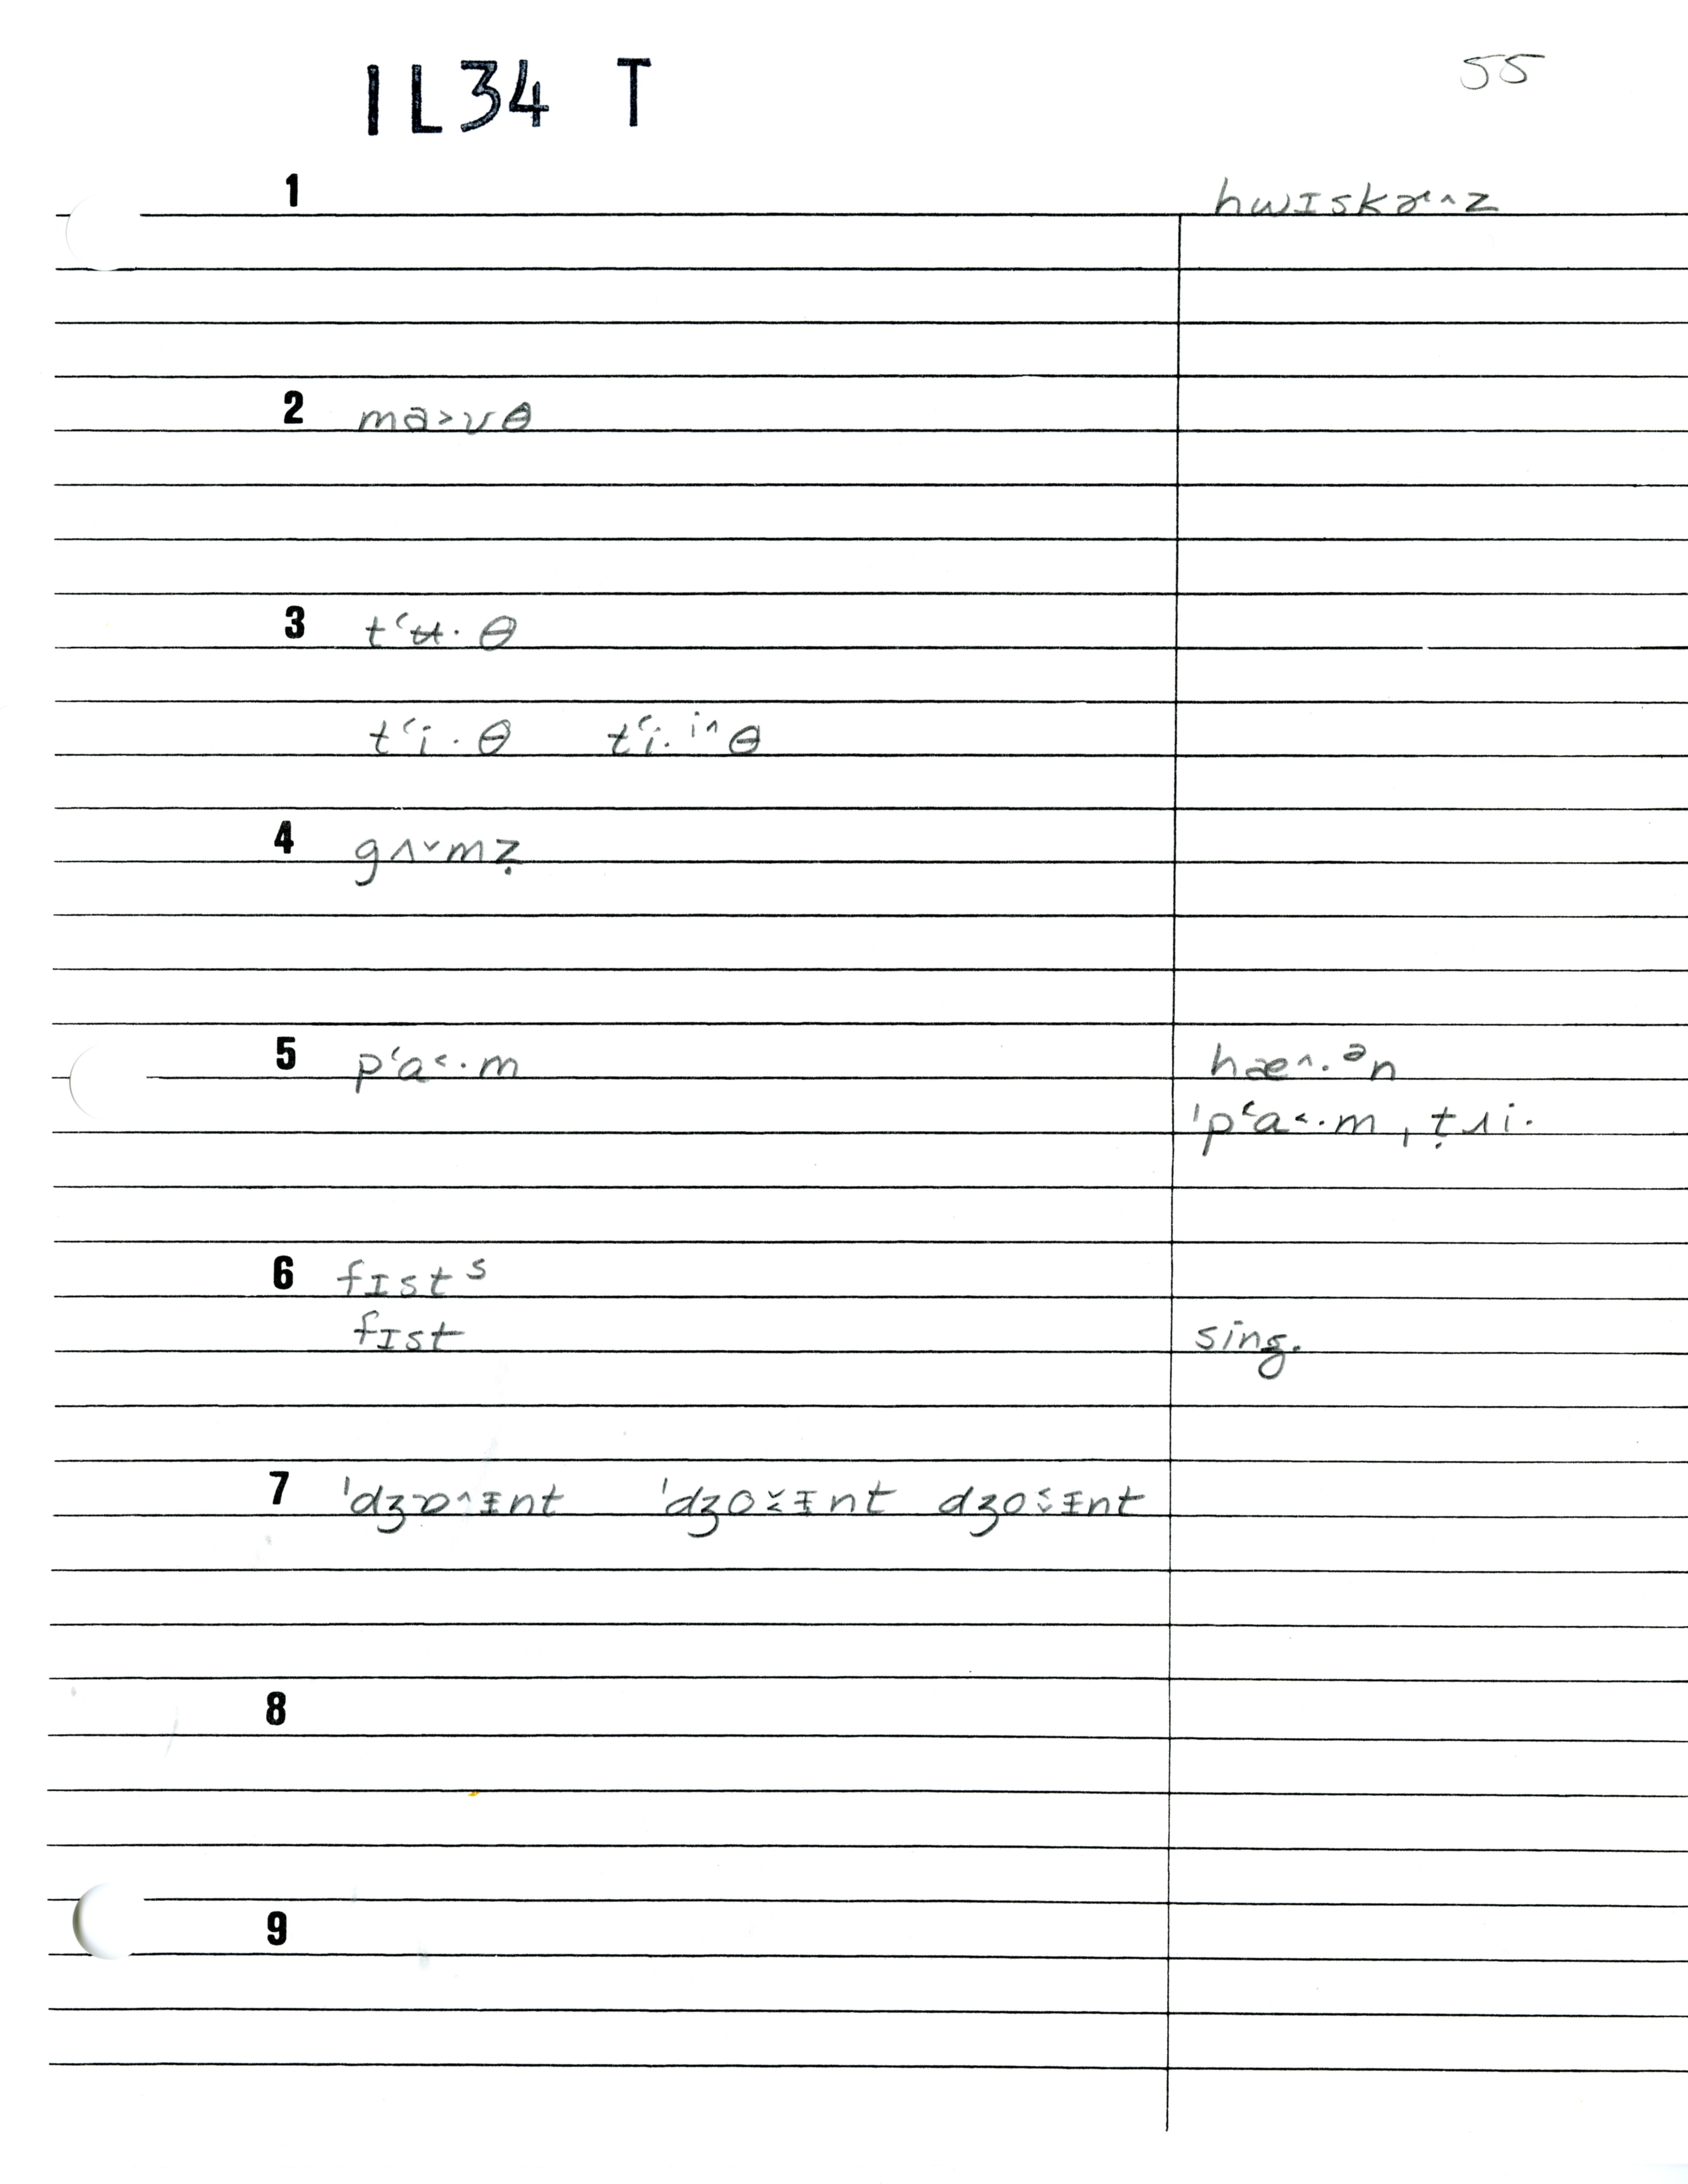 IL34 T 55
1 hwɪskɚ^z
2 ma>ʊθ
3 tʻʉ·θ
tʻi·θ tʻi·ⁱ^θ
4 gʌ˅mẓ
5 pʻɑ<·m hæ^·ᵊn
ˈpʻɑ<·m ˌṭɹi·
6 fɪstˢ
fɪst sing.
7 ˈdʒɒ^ɪ̵nt ˈdʒo˅<ɪ̵nt dʒo˅<ɪ̵nt
8
9